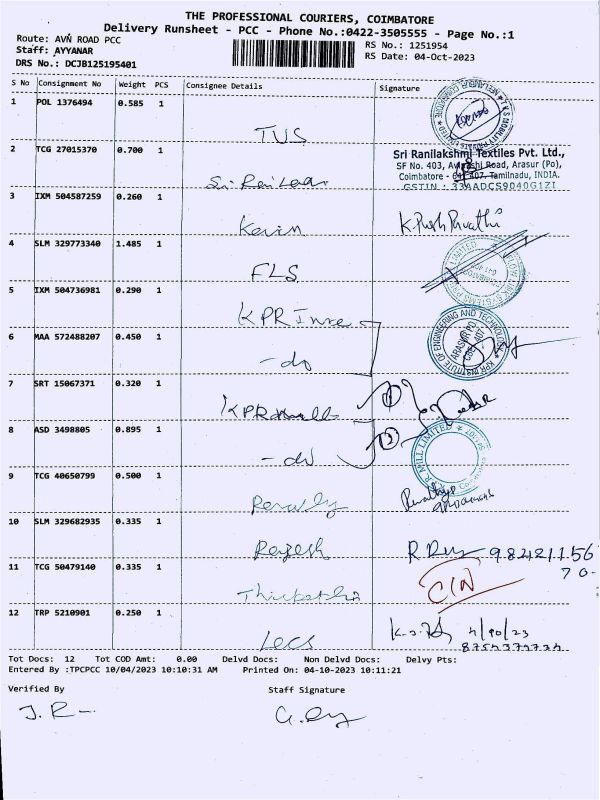 THE PROFESSIONAL COURIERS, COIMBATORE
Delivery Runsheet - PCC - Phone No.:0422-3505555 - Page No.:1
Route: AVN ROAD PCC
RS No.: 1251954
Staff: AYYANAR
RS Date: 04-Oct-2023
DRS No.: DCJB125195401
S No Consignment No Weight PCS Consignee Details Signature
1 POL 1376494 0.585 1
TVS
2 TCG 27015370 0.700 1
Sri Ranilakshmi Textiles Pvt. Ltd.,
SF No. 403, Avinashi Road, Arasur (Po),
Coimbatore - 641 407. Tamilnadu, INDIA.
GSTIN : 33AADCS9040G1ZI
3 IXM 504587259 0.260 1
Kevin
4 SLM 329773340 1.485 1
FLS
5 IXM 504736981 0.290 1
KPR
6 MAA 572488207 0.450 1
KPR INSTITUTE OF ENGINEERING AND TECHNOLOGY
ARASUR PO
- do
7 SRT 15067371 0.320 1
KPR mill
1
8 ASD 3498805 0.895 1
2
- do
MILL LIMITED
9 TCG 40650799 0.500 1
10 SLM 329682935 0.335 1
Rajesh
11 TCG 50479140 0.335 1
CIN
12 TRP 5210901 0.250 1
Lecs
Tot Docs: 12 Tot COD Amt: 0.00 Delvd Docs: Non Delvd Docs: Delvy Pts:
Entered By :TPCPCC 10/04/2023 10:10:31 AM Printed On: 04-10-2023 10:11:21
Verified By Staff Signature